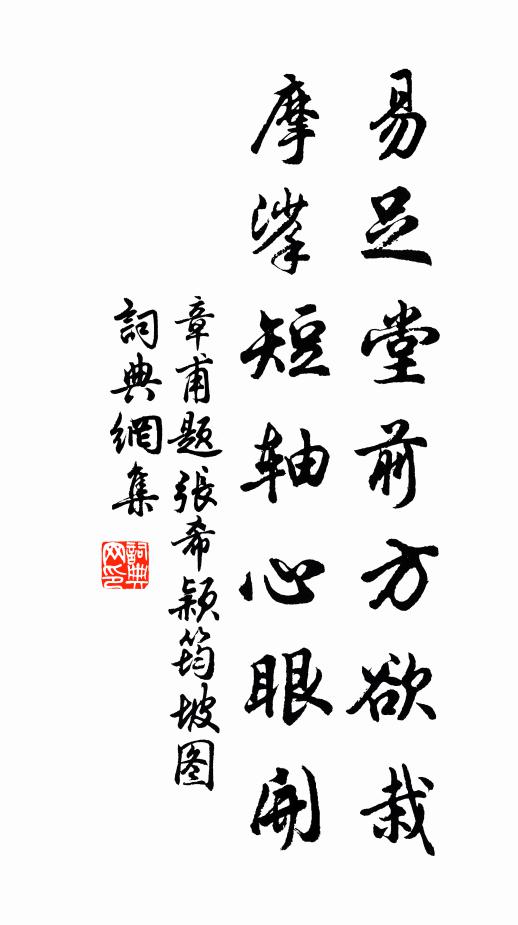 易足堂前方欲栽
摩挲短轴心眼開
章甫题張希颖筠坡图
詞典網集
詞典网印